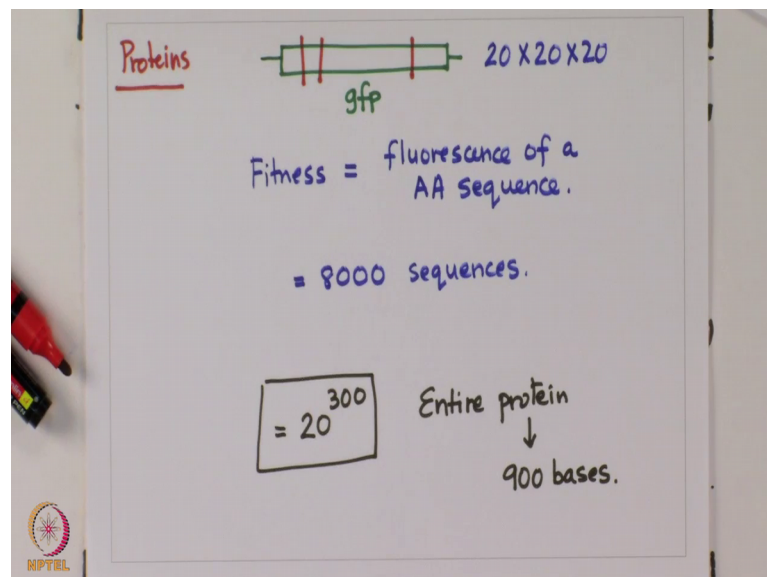 Proteins
20 X 20 X 20
gfp
Fitness = fluorescence of a
AA sequence.
= 8000 sequences.
= 20^300
Entire protein
↓
900 bases.
NPTEL